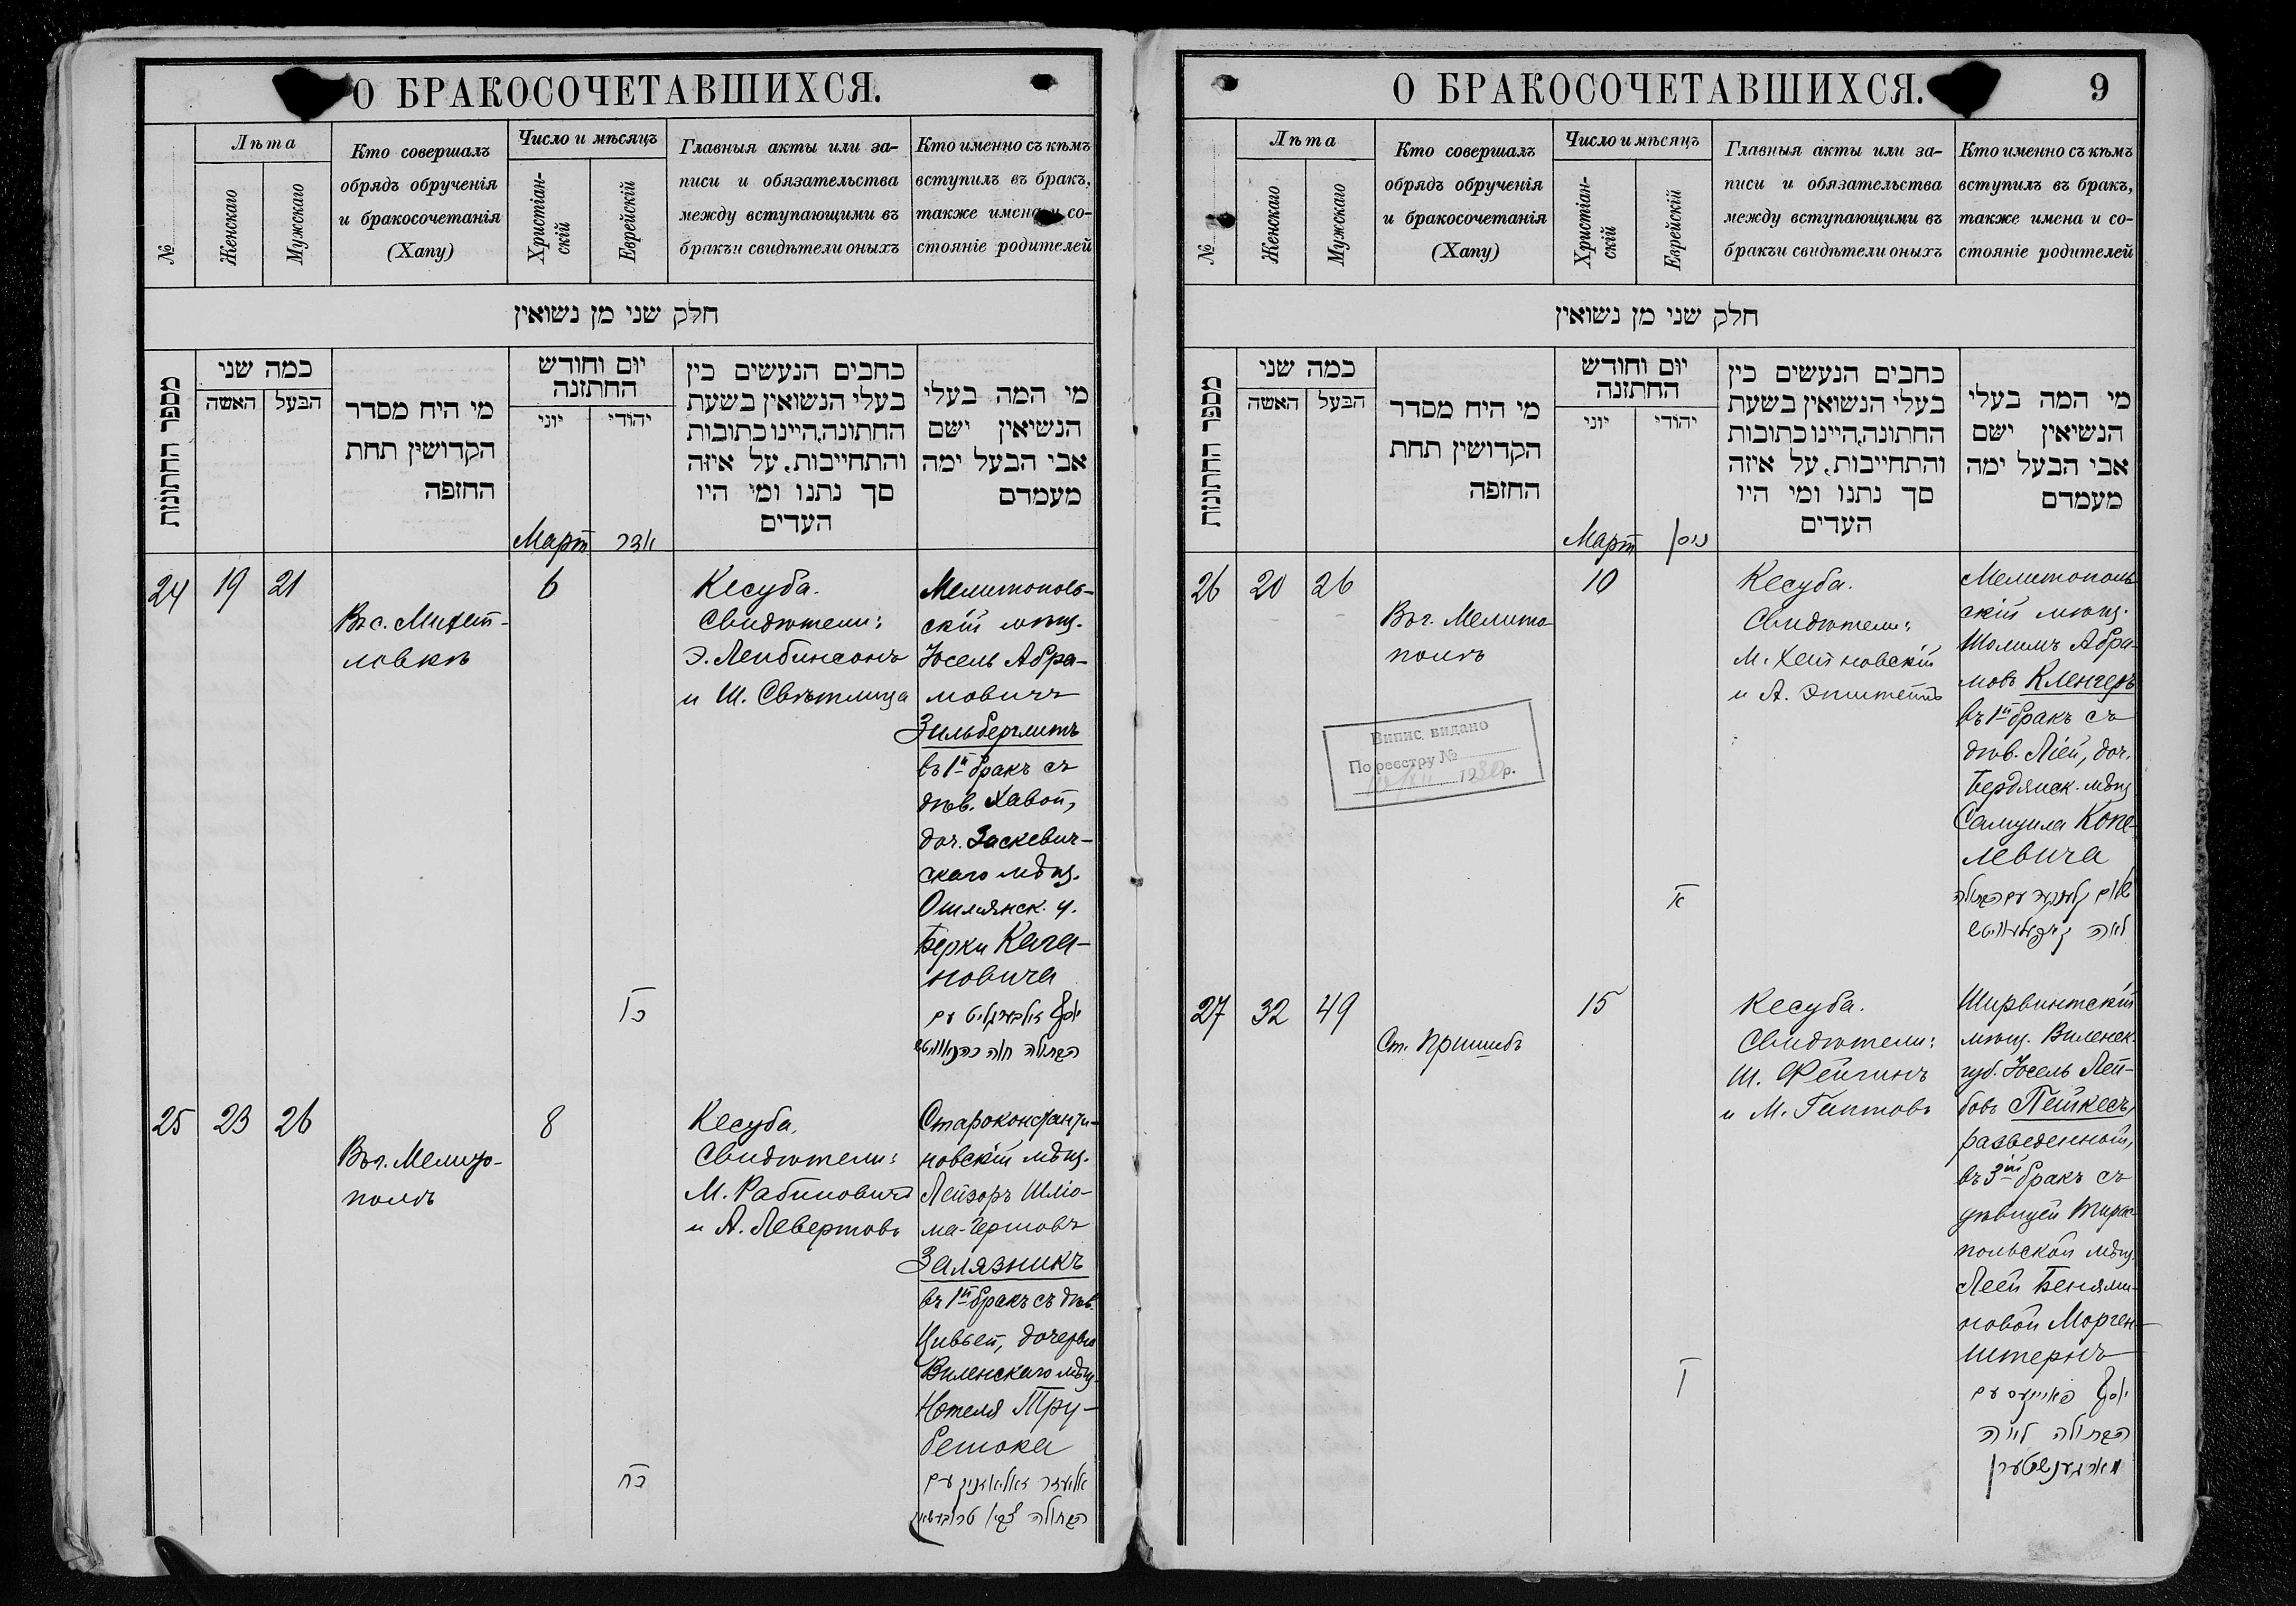 О БРАКОСОЧЕТАВШИХСЯ.
№
Лѣта
Женскаго
Мужскаго
Кто совершалъ
обрядъ обрученія
и бракосочетанія
(Хапу)
Число и мѣсяцъ
Христіан-
скій
Еврейскій
Главныя акты или за-
писи и обязательства
между вступающими въ
бракъи свидѣтели оныхъ
Кто именно съ кѣмъ
вступилъ въ бракъ,
также имена и со-
стояніе родителей
חלק שני מן נשואין
מספר החתונות
כמה שני
האשה
הבעל
מי היח מסדר
הקדושין תחת
החזפה
יום וחודש
החתזנה
יוני
יהודי
כחבים הנעשים כין
בעלי הנשואין בשעת
החתונה,היינו כתובות
והתחייבות, על איזה
סך נתנו ומי היו
העדים
מי המה בעלי
הנשיאין ישם
אבי הבעל ימה
מעמדם
Мартъ
אדר
24
19
21
Въ с. Михай-
ловкѣ
6
כו
Кесуба.
Свидѣтели:
Э. Лейбинсонъ
и Ш. Свѣтлица
Мелитополь-
скій мѣщ.
Іосель Абра-
мовичъ
Зильберглитъ
въ 1й бракъ съ
дѣв. Хавой,
доч. Заскевич-
скаго мѣщ.
Ошмянск. у.
Берки Кага-
новича
יוסף זילבערגליט עם
הבתולה חוה כהנאוויטש
25
23
26
Въ г. Мелито-
полѣ
8
כח
Кесуба.
Свидѣтели:
М. Рабиновичъ
и А. Левертовъ
Староконстанти-
новскій мѣщ.
Лейзоръ Шліо-
ма-Гершовъ
Залязникъ
въ 1й бракъ съ дѣв.
Цивьей, дочерью
Виленскаго мѣщ.
Нотеля Тру-
бешока
אליעזר זאליאזניק עם
הבתולה צביא
О БРАКОСОЧЕТАВШИХСЯ.
9
№
Лѣта
Женскаго
Мужскаго
Кто совершалъ
обрядъ обрученія
и бракосочетанія
(Хапу)
Число и мѣсяцъ
Христіан-
скій
Еврейскій
Главныя акты или за-
писи и обязательства
между вступающими въ
бракъи свидѣтели оныхъ
Кто именно съ кѣмъ
вступилъ въ бракъ,
также имена и со-
стояніе родителей
חלק שני מן נשואין
מספר החתונות
כמה שני
האשה
הבעל
מי היח מסדר
הקדושין תחת
החזפה
יום וחודש
החתזנה
יוני
יהודי
כחבים הנעשים כין
בעלי הנשואין בשעת
החתונה,היינו כתובות
והתחייבות, על איזה
סך נתנו ומי היו
העדים
מי המה בעלי
הנשיאין ישם
אבי הבעל ימה
מעמדם
Мартъ
ניסן
26
20
26
Въ г. Мелито-
полѣ
10
א
Кесуба.
Свидѣтели:
М. Хейновскій
и А. Эпштейнъ
Мелитополь-
скій мѣщ.
Шолимъ Абра-
мовъ Кленгеръ
въ 1й бракъ съ
дѣв. Ліей, доч.
Бердянск. мѣщ.
Самуила Копе-
левича
שלום קלענגער עם הבתולה
לאה קאפעלעוויטש
Випис видано
По реєстру №
1930р.
27
32
49
Ст. Пришибъ
15
ו
Кесуба.
Свидѣтели:
Ш. Фейгинъ
и М. Гиттовъ
Ширвинтскій
мѣщ. Виленск.
губ. Іосель Лей-
бовъ Пейкесъ,
разведенный,
въ 3й бракъ съ
дѣвицей Тирас-
польской мѣщ.
Леей Бенями-
новой Морген-
штернъ
יוסף פאייקעס עם
הבתולה לאה
מארגענשטערן